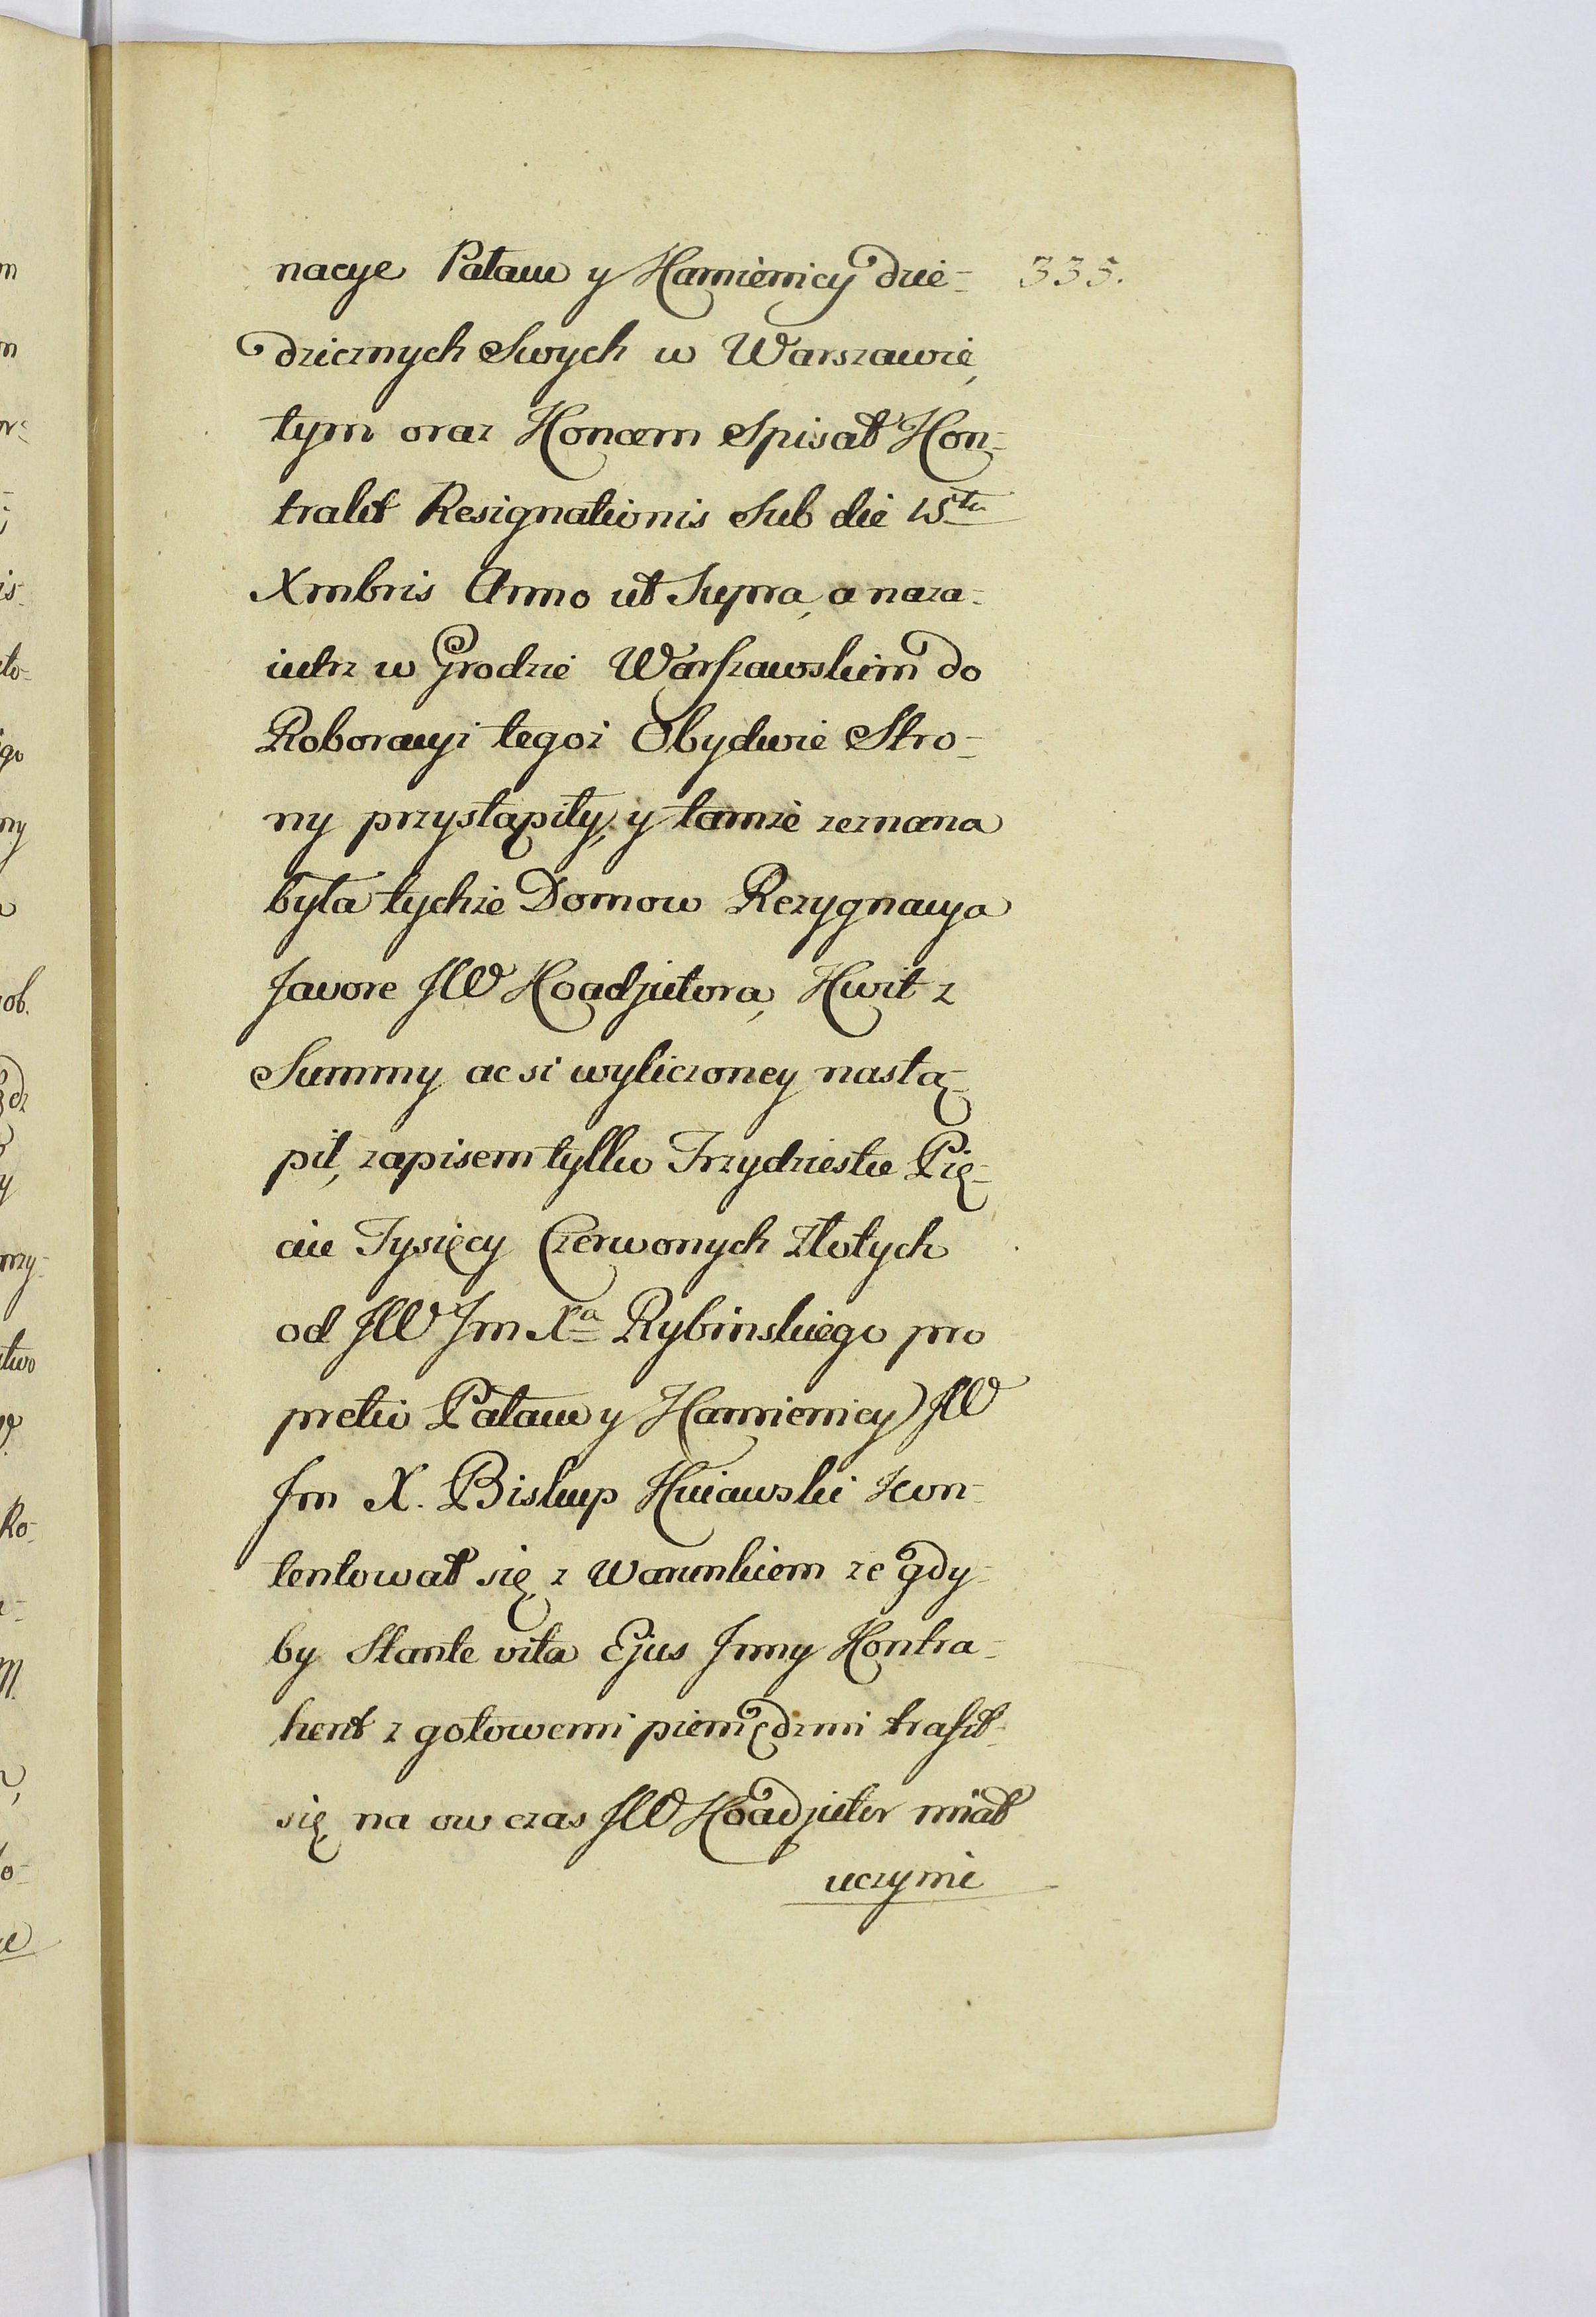 nacye Pałacu y Kamienicy dzie- 335.
dzicznych Swych w Warszawie,
tym oraz Koncem Spisał Kon-
trakt Resignationis Sub die 15ta
Xmbris Anno ut Supra, a naza-
iutrz w Grodzie Warszawskim do
Roboracyi tegoż Obydwie Stro-
ny przystąpiły, y tamże zeznana
była tychże Domow Rezygnacya
favore JW Koadjutora, Kwit z
Summy ac si wyliczoney nastą-
pił, zapisem tylko Trzydziestu Pię-
ciu Tysięcy Czerwonych Złotych
od JW Jm Xa Rybinskiego pro
pretio Pałacu y Kamienicy JW
Jm X. Biskup Kuiawski kon-
tentował się z Warunkiem ze gdy-
by Stante vita Ejus Jnny Kontra-
hent z gotowemi pieniędzmi trafił
się na ow czas JW Koadjutor miał
uczynic